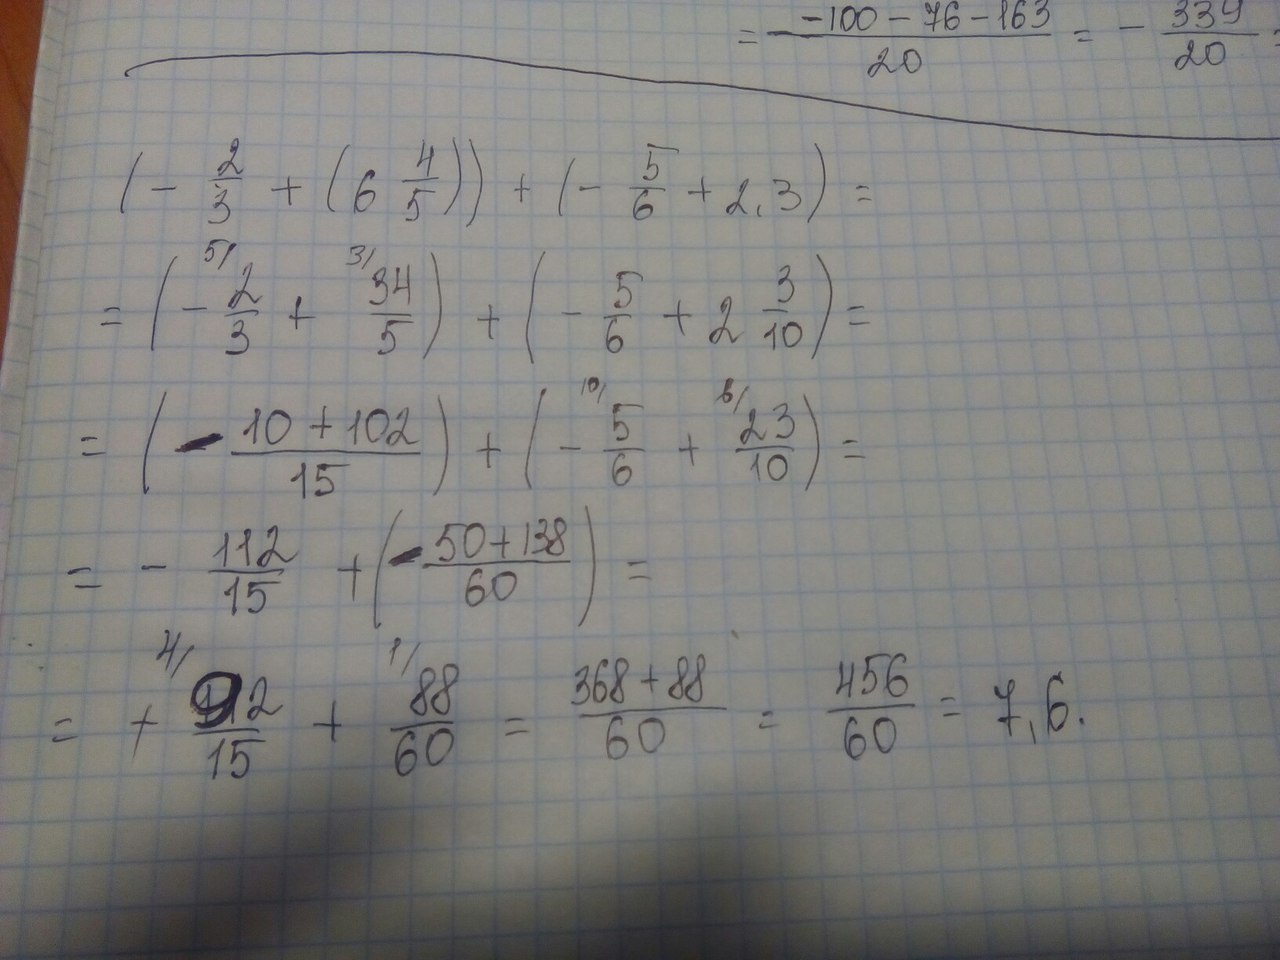 = (-100 - 76 - 163)/20 = - 339/20 =
(- 2/3 + (6 4/5)) + (- 5/6 + 2,3) =
= (- 5/ 2/3 + 3/ 34/5) + (- 5/6 + 2 3/10) =
= (- (10 + 102)/15) + (- 10/ 5/6 + 6/ 23/10) =
= - 112/15 + (- (50 + 138)/60) =
= + 4/ 92/15 + 1/ 88/60 = (368 + 88)/60 = 456/60 = 7,6.